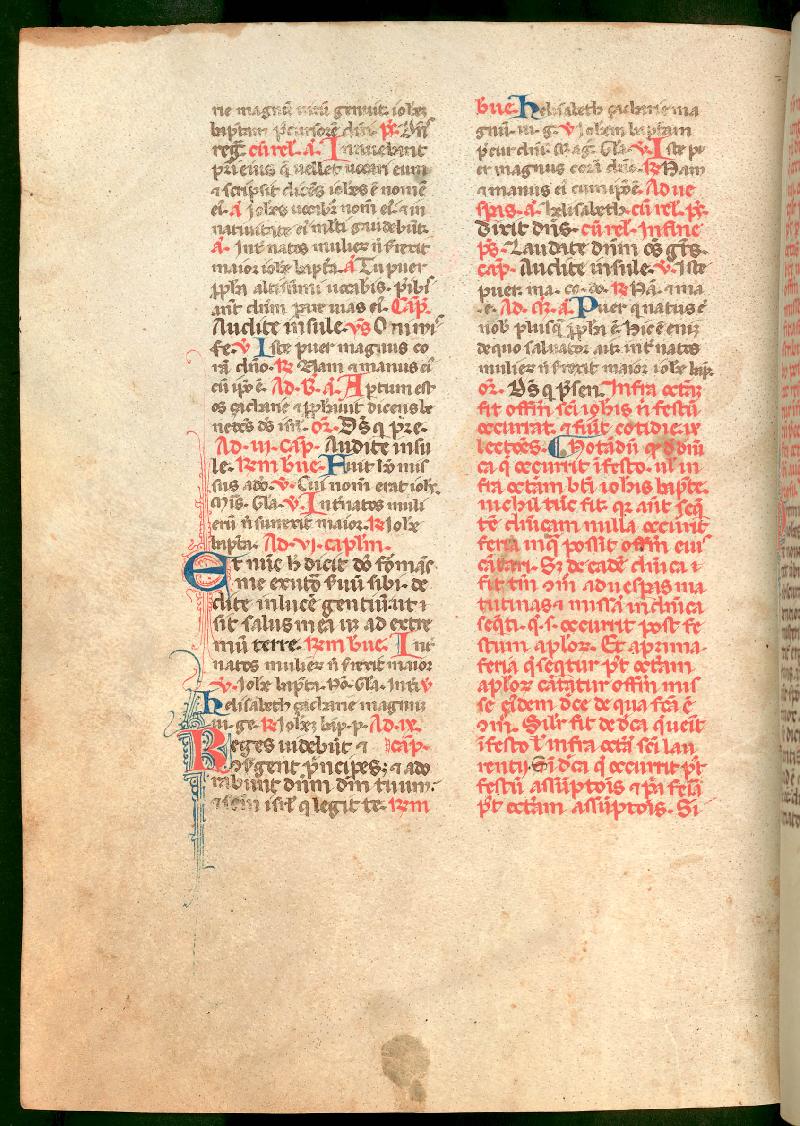 rie magnū virū genuit. ioh̄ez
baptam p̄cursorē dn̄i. p̄s. Dn̄s
reg̅. cū rel. a. Innuebant
pr̄i eius q̄ vellet vocari eum
⁊ scripsit dicēs ioh̄es ē nomē
ei. a. ioh̄es vocabit̄ nom̄ ei. ⁊ in
nativitate ei multi gaudebūt.
a. Int̄ natos mulier̄ n̄ srexit
maior ioh̄e bapta. a Tu puer
ppha altissimi vocabis. p̄ibis
ant̄ dn̄m parare vias ei. Cap̄.
Audite insule. vs̄ O nimis
fe. v Iste puer magnus co
rā dn̄o. R̄ Nam ⁊ manus ei
cū ip̄o ē. Ad. b̄. a. Aptum est
os zacharie ⁊ pphavit dicens be
netūs ds̄ isrl. or̄. Ds̄ q̄ pre.
Ad. iii. cap̄. Audite insu
le. Rem bue. Fuit h̄o mis
sus a do. v. Cui nom̄ erat ioh̄.
Mis. Gla. v. Int̄ natos muli
erū n̄ surrexit maior. R̄ Ioh̄e
bapta. Ad. vi. caplm̄.
Et nūc h̄ dicit dn̄s formās
me ex utō suū sibi. de
di te in lucē gentiū. ut i
sit salus mea usq̄ ad extre
mū terre. Rem bue. Int̄
natos mulier̄ n̄ srexit maior
v. Ioh̄e bapta. No. Gla. Int̄i v
helisabeth zacharie magnū
vi. ge. R̄ Ioh̄ez bap. p. Ad. ix.
Reges videbūt ⁊ cap̄.
c̄surgent p̄ncipes; ⁊ ado
rabunt dn̄m dm̄ tuum.
⁊ scm̄ isrl q̄ legit te. Rem
bue. helisabeth zacharie ma
gnū. vi. g. v Ioh̄em baptam
p̄cur dn̄i. Mag. Gla. v. Iste pu
er magnus corā dn̄o. R̄ Nam
⁊ manus ei cum ipo ē. Ad ve
sp̄as. a. helisabeth. cū rel. p̄s.
dixit dn̄s. cū rel. In fine
p̄s. Laudate dn̄m oēs gēts.
cap̄. Audite insule. v. Iste
puer. ma. co. do. R̄ Nā. ⁊ ma
.e. Ad. m̄. a. Puer q̄ natus ē
nob̄ plusq̄ ppha ē. Hic ē enī
de quo salvator ait. int̄ natos
mulier̄ n̄ srexit maior ioh̄e bap.
or̄. Ds̄ q̄ p̄sen. Infra octām
fit offm̄ scī ioh̄is n̄ festū
occurrat. ⁊ fiūt cotidie. ix
lectōes. Notādū q̄ d dn̄i
ca q̄ occurrit ī festo. ul̄ in
fra octām bt̄i ioh̄is bapte.
nichil tūc fit. q̄r ant̄ seq̄
tē dn̄icam nulla occurrit
feria in q̄ possit offm̄ eius
cātari. Si de eadē dn̄ica i
fit tm̄ ɔm̄ ad vespas ma
tutinas ⁊ missā in dn̄ica
seq̄ti. q̄. s. occurrit post fe
stum aplor̄. Et a prima
feria q̄ seq̄tur p̄t octām
aplor̄ cātatur offm̄ mis
se eidem dn̄ce de qua fcā ē
ɔm̄. Silr̄ fit de dn̄ca q̄ ueīt
ī festo ul̄ infra octā scī lau
rentij. Si dn̄ca q̄ occurrit p̄t
festū assūptōis ⁊ p̄a feīa
p̄t octām assūptōis. Si